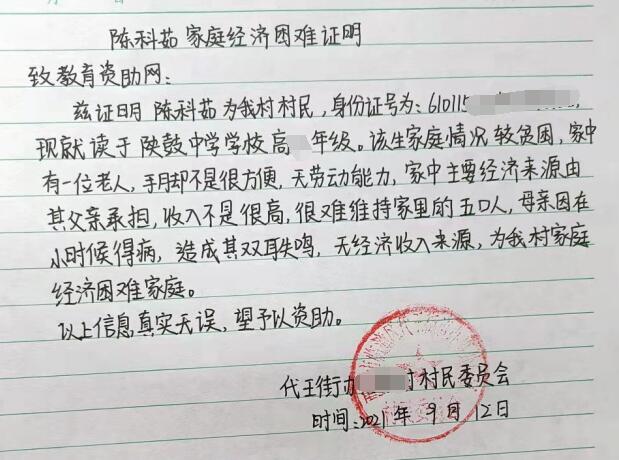 陈科茹家庭经济困难证明
致教育资助网:
兹证明陈科茹为我村村民,身份证号为:610115
现就读于陕鼓中学学校高 年级。该生家庭情况较贫困,家中
有一位老人,手脚不是很方便,无劳动能力,家中主要经济来源由
其父亲承担,收入不是很高,很难维持家里的五口人,母亲因在
小时候得病,造成其双耳失鸣,无经济收入来源,为我村家庭
经济困难家庭。
以上信息真实无误,望予以资助。
代王街办 村村民委员会
时间:2021年9月12日